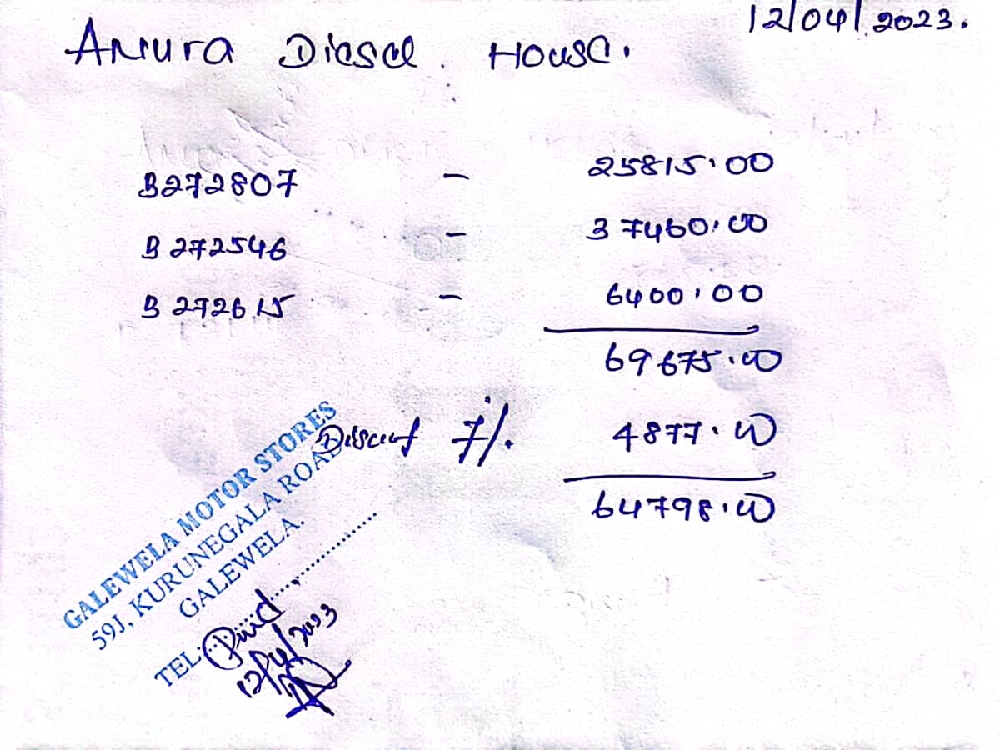 12/04/2023.
Anura Diesel House.
B272807 - 25815.00
B272546 - 37460.00
B272615 - 6400.00
69675.00
Discunt 7%. 4877.00
64798.00
GALEWELA MOTOR STORES
59J, KURUNEGALA ROAD
GALEWELA.
TEL:..............................
Paid
12/4/2023